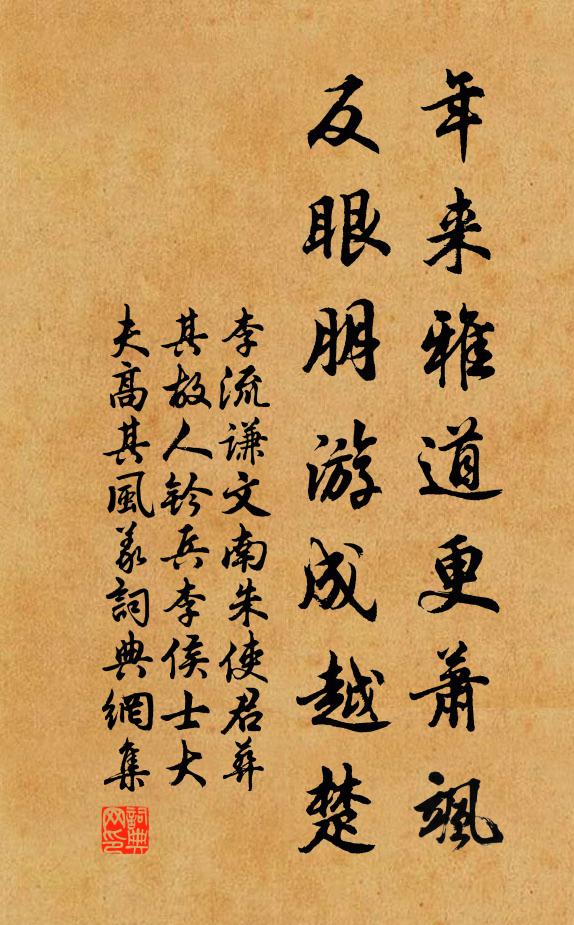 年来雅道更蕭颯
反眼朋游成越楚
李流謙文南朱使君葬
其故人鈐兵李侯士大
夫高其風義詞典網集
詞典网印